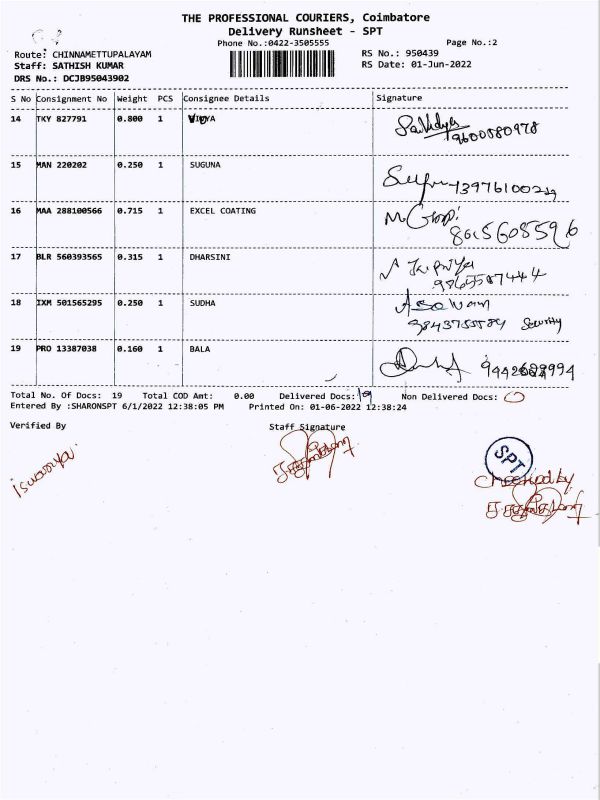 THE PROFESSIONAL COURIERS, Coimbatore
Delivery Runsheet - SPT
Phone No.:0422-3505555
Page No.:2
Route: CHINNAMETTUPALAYAM
RS No.: 950439
Staff: SATHISH KUMAR
RS Date: 01-Jun-2022
DRS No.: DCJB95043902
S No Consignment No Weight PCS Consignee Details Signature
14 TKY 827791 0.800 1 VIDYA
9600580978
15 MAN 220202 0.250 1 SUGUNA
16 MAA 288100566 0.715 1 EXCEL COATING
17 BLR 560393565 0.315 1 DHARSINI
18 IXM 501565295 0.250 1 SUDHA
Security
19 PRO 13387038 0.160 1 BALA
Total No. Of Docs: 19 Total COD Amt: 0.00 Delivered Docs: 19 Non Delivered Docs: 0
Entered By :SHARONSPT 6/1/2022 12:38:05 PM Printed On: 01-06-2022 12:38:24
Verified By Staff Signature
SPT
Checked by